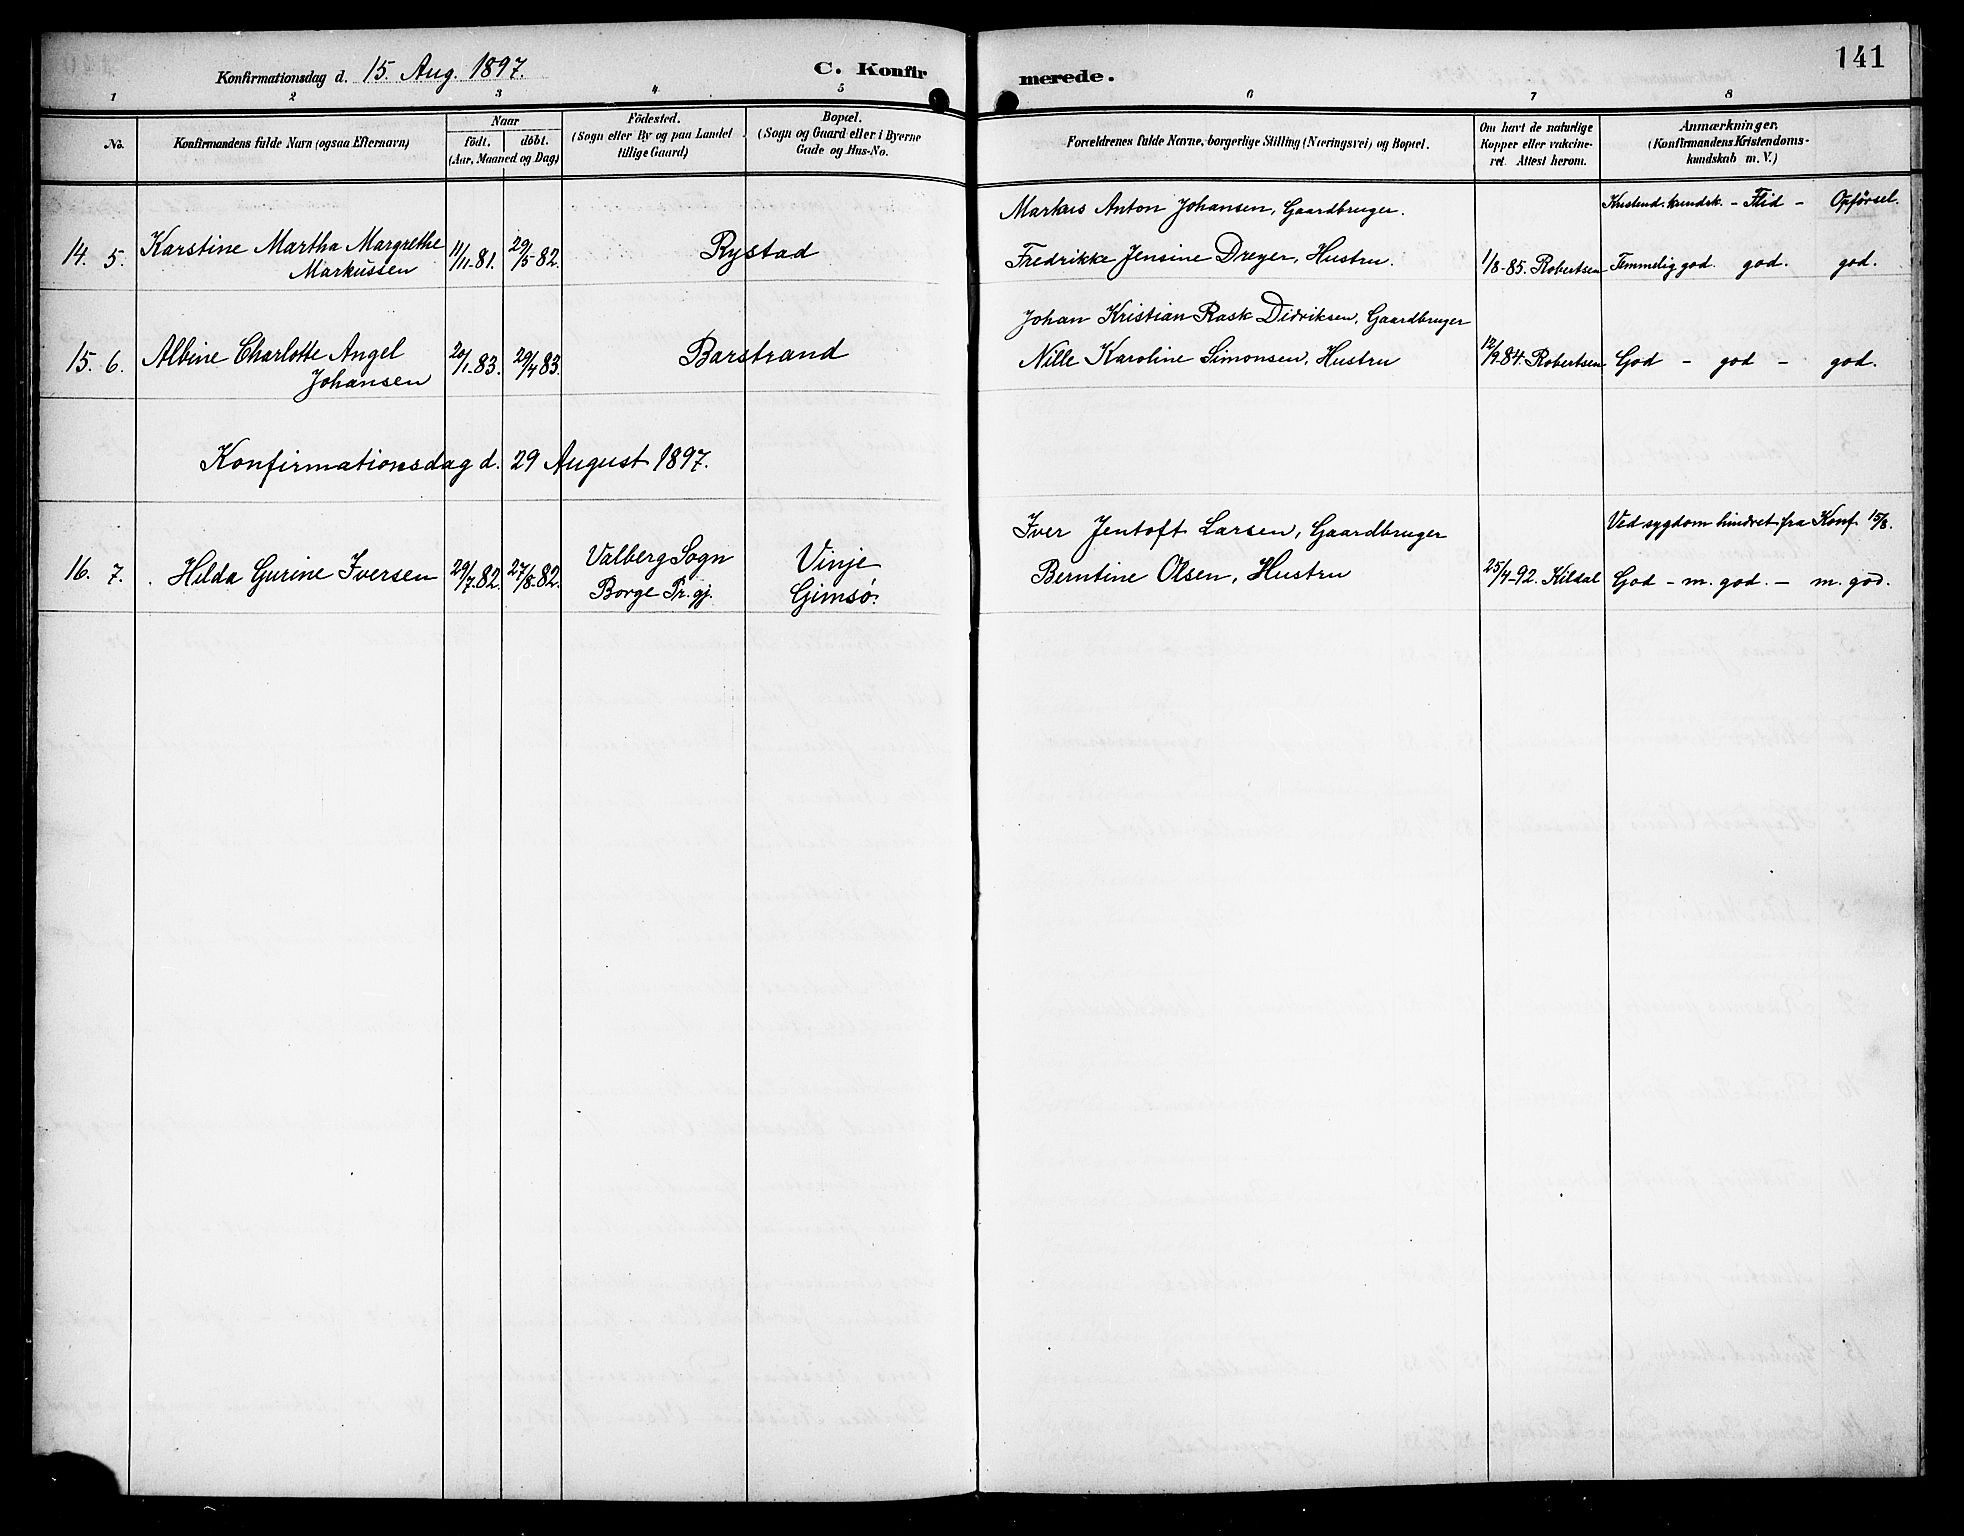 Konfirmationsdag d. 15 Aug. 1897.
C. Konfir
merede.
141
1 2 3 4 5 6 7 8
No.
Konfirmandens fulde Navn (ogsaa Efternavn)
Naar
født. døbt.
(Aar, Maaned og Dag)
Fødested.
(Sogn eller By og paa Landet
tillige Gaard)
Bopæl.
(Sogn og Gaard eller i Byerne
Gade og Hus-No.
Forældrenes fulde Navne, borgerlige Stilling (Næringsvei) og Bopæl.
Om havt de naturlige
Kopper eller vakcine-
ret. Attest herom.
Anmærkninger.
(Konfirmandens Kristendoms-
kundskab m. V.)
Markus Anton Johansen, Gaardbruger.
Kristend. kundsk. - Flid - Opførsel.
14. 5. Karstine Martha Margrethe
Markussen
11/11-81. 29/5 82. Rystad
Fredrikke Jensine Dreyer, Hustru. 1/8-85. Robertsen Temmelig god. god. god.
Johan Kristian Rask Didriksen, Gaardbruger
15. 6. Albine Charlotte Angel
Johansen
20/1-83. 29/4 83. Barstrand
Nille Karoline Simonsen, Hustru 12/9-84. Robertsen God - god - god.
Konfirmationsdag d. 29 August 1897.
Iver Jentoft Larsen, Gaardbruger
Ved sygdom hindret fra Konf. 15/8.
16. 7. Hilda Gurine Iversen 29/7.82. 27/8.82.
Valberg Sogn
Borge Pr.gj.
Vinje
Gimsø.
Berntine Olsen, Hustru 25/4-92. Kildal God - m. god. - m. god.